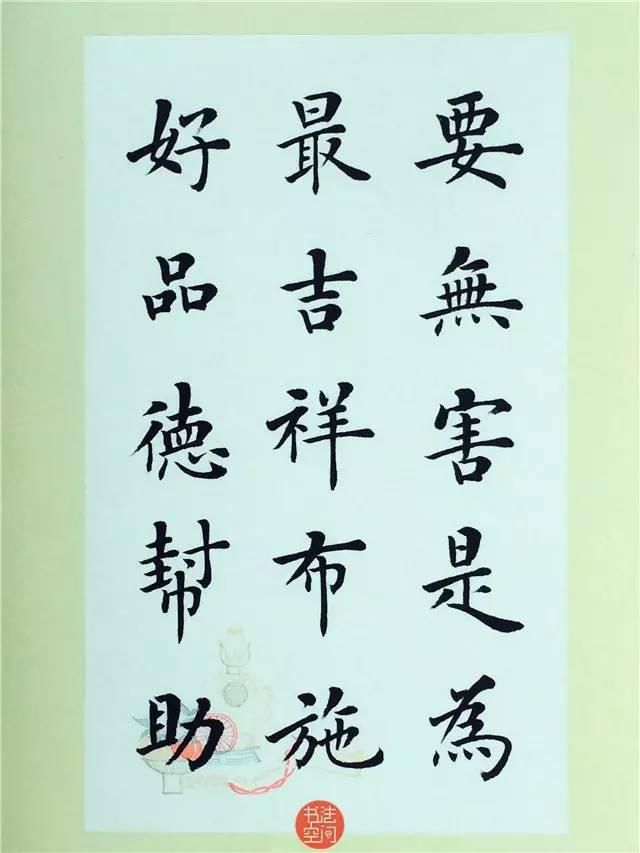 要無害是為
最吉祥布施
好品德幫助
书法
空间